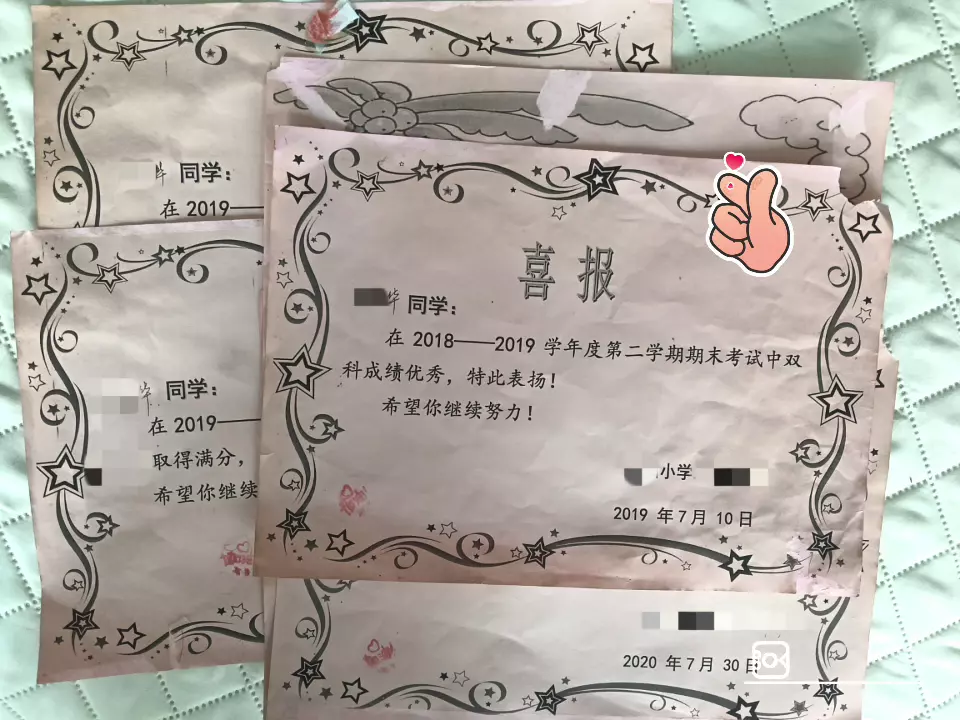 同学：
在 2019——
同学：
在 2019——
取得满分，
希望你继续
喜报
华 同学：
在 2018——2019 学年度第二学期期末考试中双
科成绩优秀，特此表扬！
希望你继续努力！
小学
2019 年 7 月 10 日
2020 年 7 月 30 日